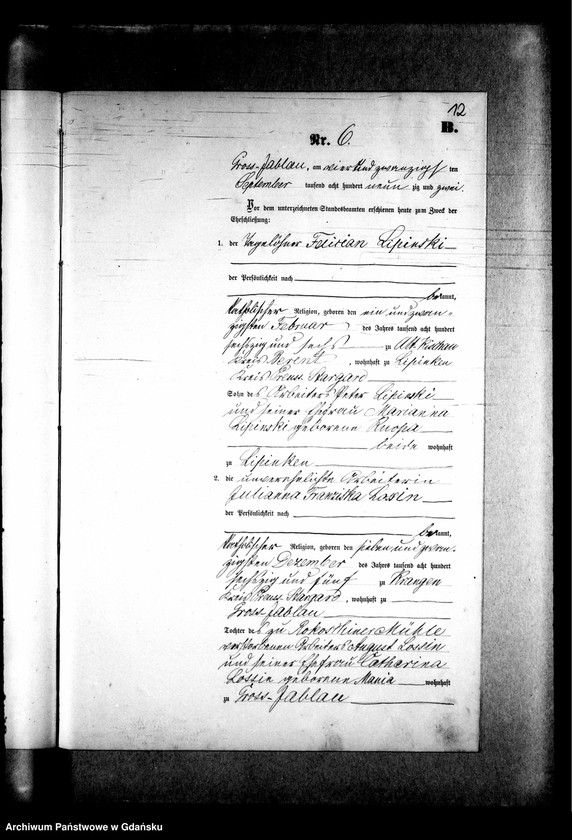 12
B.
Nr. 6.
Gross-Jablau, am vier und zwanzigs ten
September tausend acht hundert neun zig und zwei.
Vor dem unterzeichneten Standesbeamten erschienen heute zum Zweck der
Eheschließung:
1. der Tagelöhner Felician Lipinski
der Persönlichkeit nach
bekannt,
katholischer Religion, geboren den ein und zwan-
zigsten Februar des Jahres tausend acht hundert
sechszig und sechs zu Alt Kischau
Kreis Berent, wohnhaft zu Lipinken
Kreis Preuss. Stargard
Sohn des Arbeiters Peter Lipinski
und seiner Ehefrau Marianna
Lipinski geborene
beide wohnhaft
zu Lipinken
2. die unverehelichte Arbeiterin
Julianna Franziska Losin
der Persönlichkeit nach
bekannt,
katholischer Religion, geboren den sieben und zwan-
zigsten Dezember des Jahres tausend acht hundert
sechszig und fünf zu Krangen
Kreis Preuss. Stargard, wohnhaft zu
Gross Jablau
Tochter des zu Rokoschiner Mühle
verstorbenen Arbeiters August Lossin
und seiner Ehefrau Catharina
Lossin geborene Mania wohnhaft
zu Gross-Jablau
Archiwum Państwowe w Gdańsku